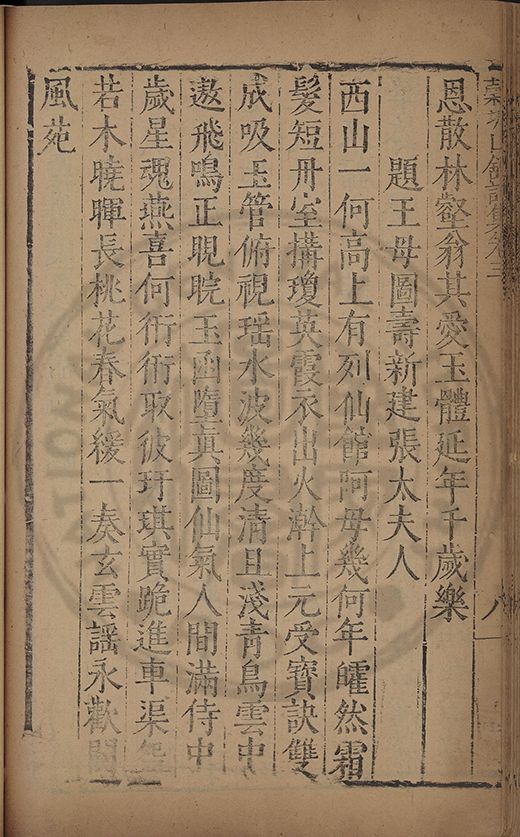 穀城山館詩集卷三
八
恩散林壑翁其愛玉體延年千歲樂
題王母圖壽新建張太夫人
西山一何高上有列仙館阿母幾何年皬然霜
髮短丹室搆瓊英霞衣出火澣上元受寶訣雙
成吸玉管俯視瑶水波幾度清且淺青鳥雲中
遨飛鳴正睍睆玉函墮真圖仙氣人間滿侍中
歲星魂燕喜何衎衎取彼玗琪實跪進車渠盌
若木曉暉長桃花春氣緩一奏玄雲謠永歡閬
風苑